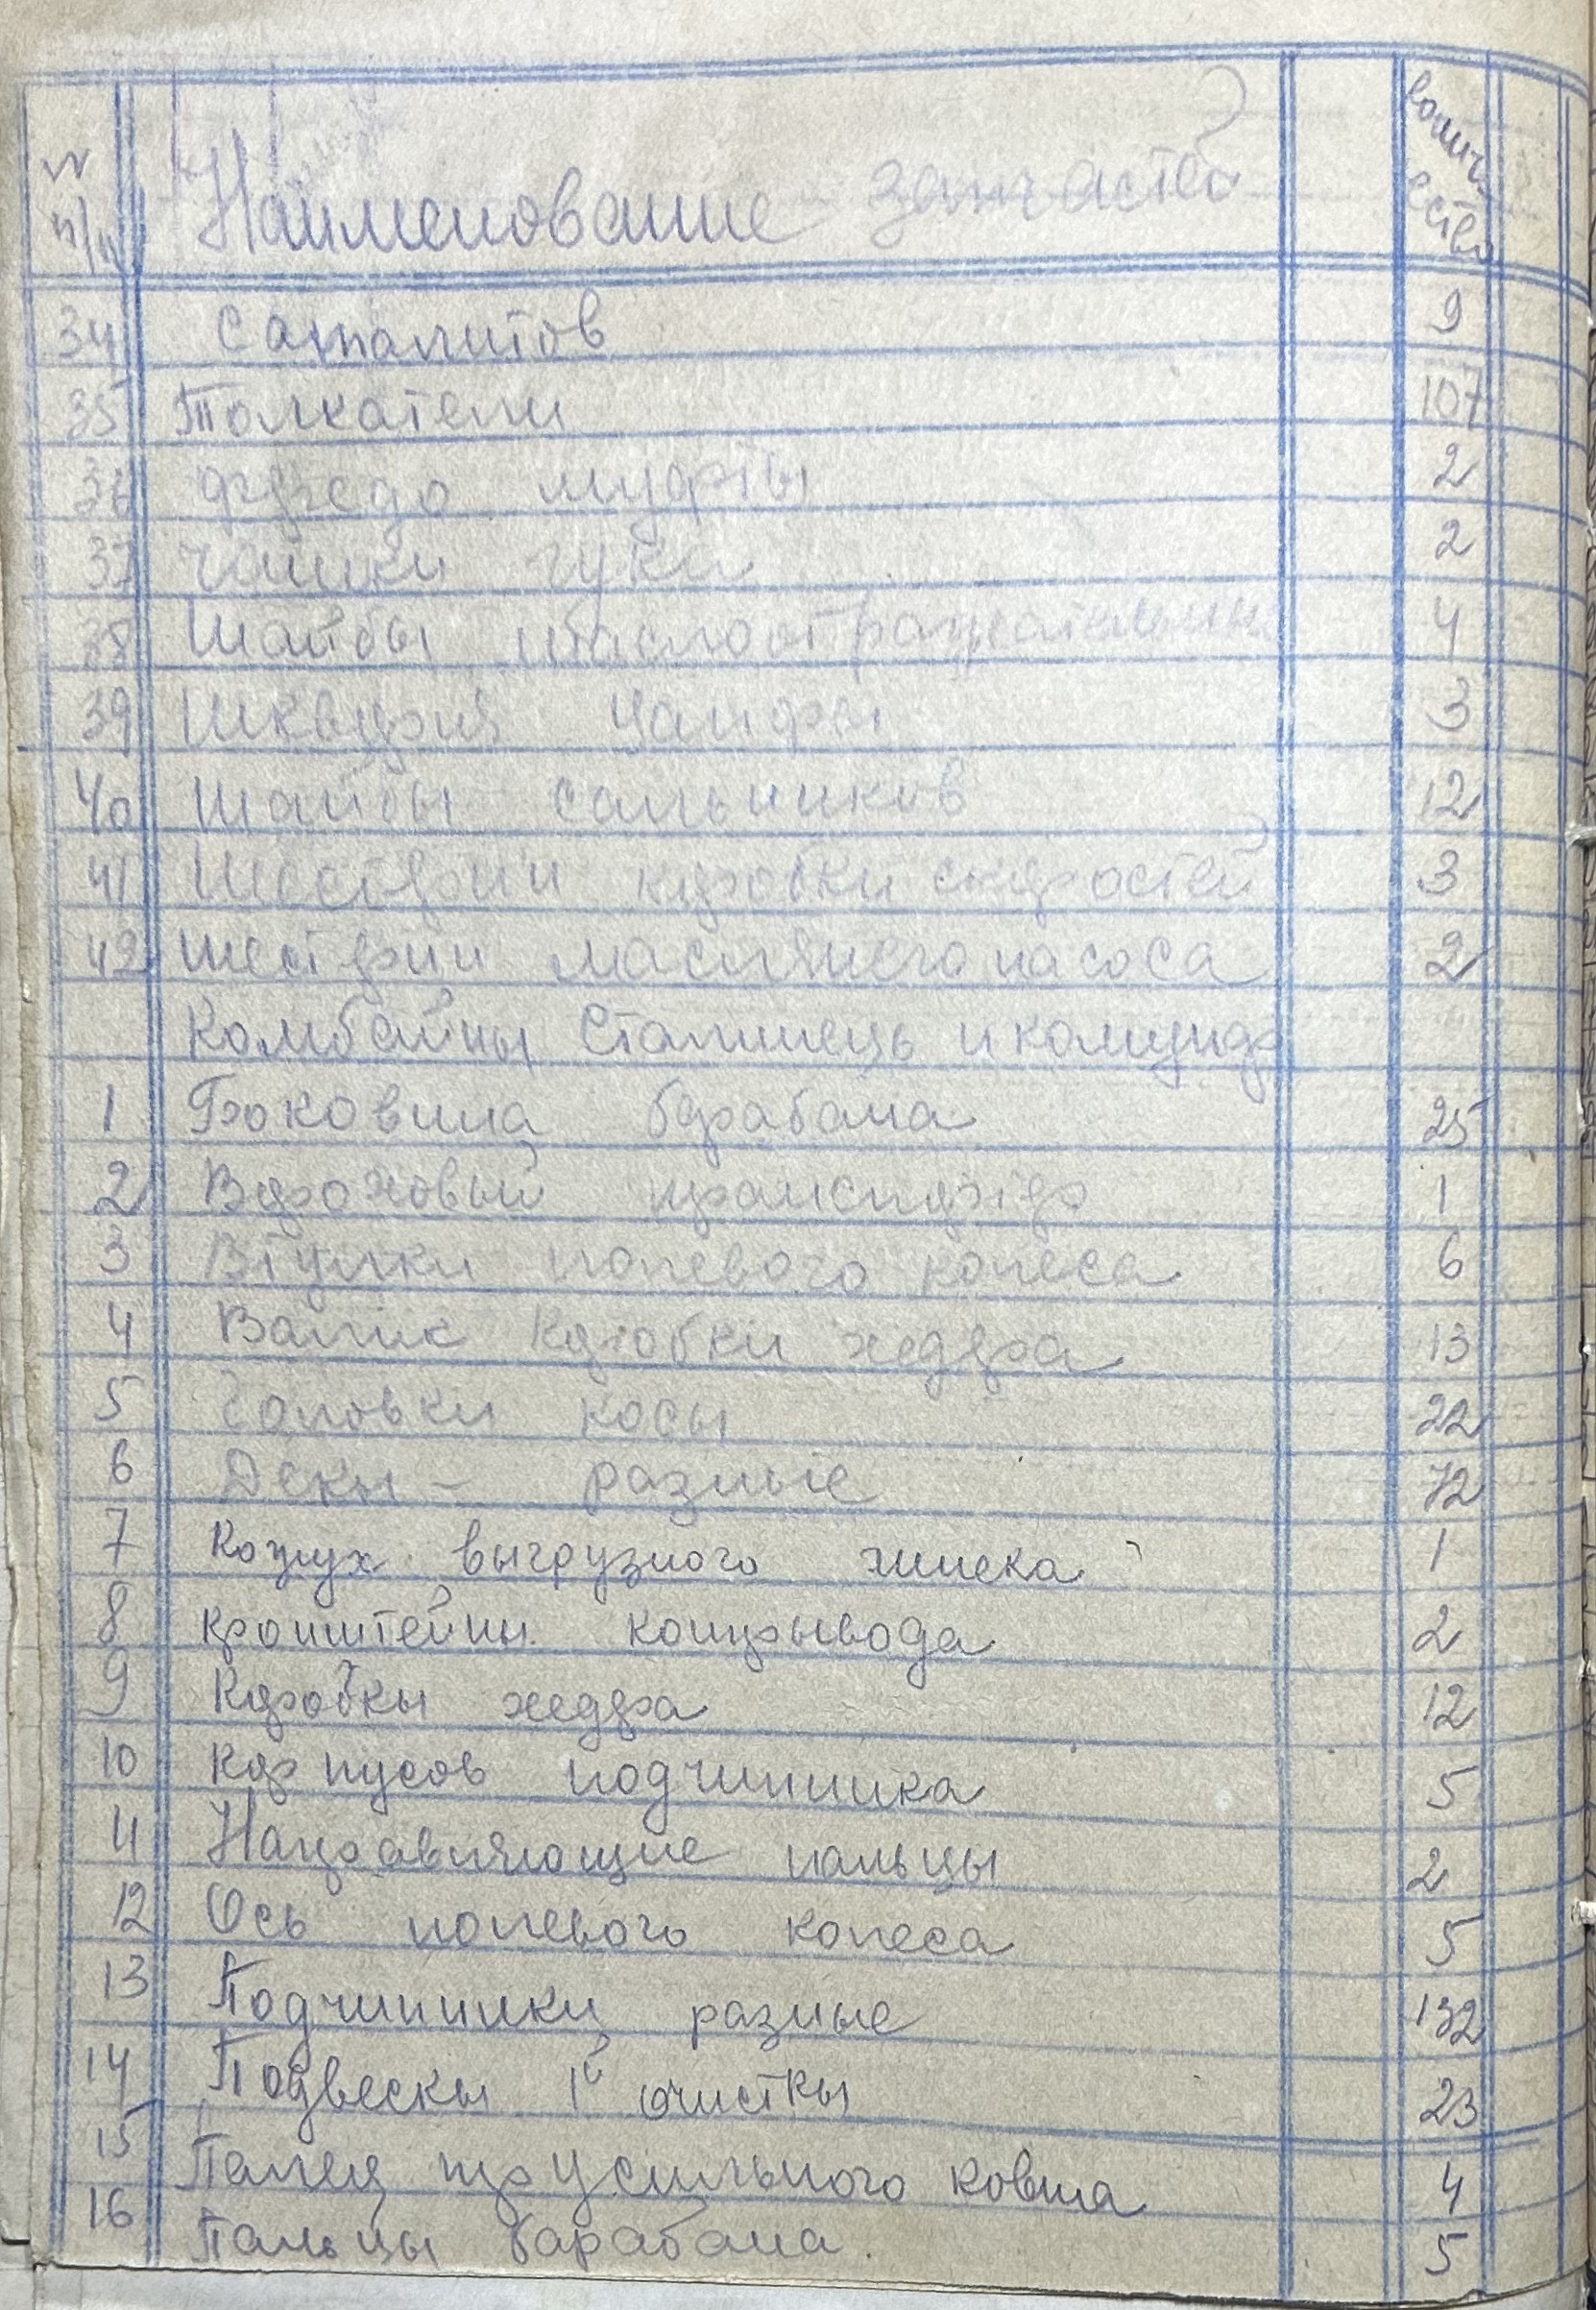 N
п/п Наименование запчастей колич-
ество
34 Сателитов 9
35 Толкатели 107
36 муфты 2
37 чашки гука 2
38 Шайбы маслоотражательн 4
39 Шкворня цапфы 3
40 Шайбы сальников 12
41 Шестерни коробки скоростей 3
42 шестерни масляного насоса 2
Комбайны Сталинець и комунар
1 Боковина барабана 25
2 Вороховый транспортер 1
3 Втулки полевого колеса 6
4 Валик коробки хедера 13
5 Головки косы 22
6 Деки - разные 72
7 Кожух выгрузного шнека 1
8 кронштейны копрывода 2
9 Коробкы хедера 12
10 Корпусов подчипника 5
11 Направляющие пальцы 2
12 Ось полевого колеса 5
13 Подчипники разные 132
14 Подвескы 1й очисткы 23
15 Палец трусильного ковша 4
16 Пальцы барабана. 5